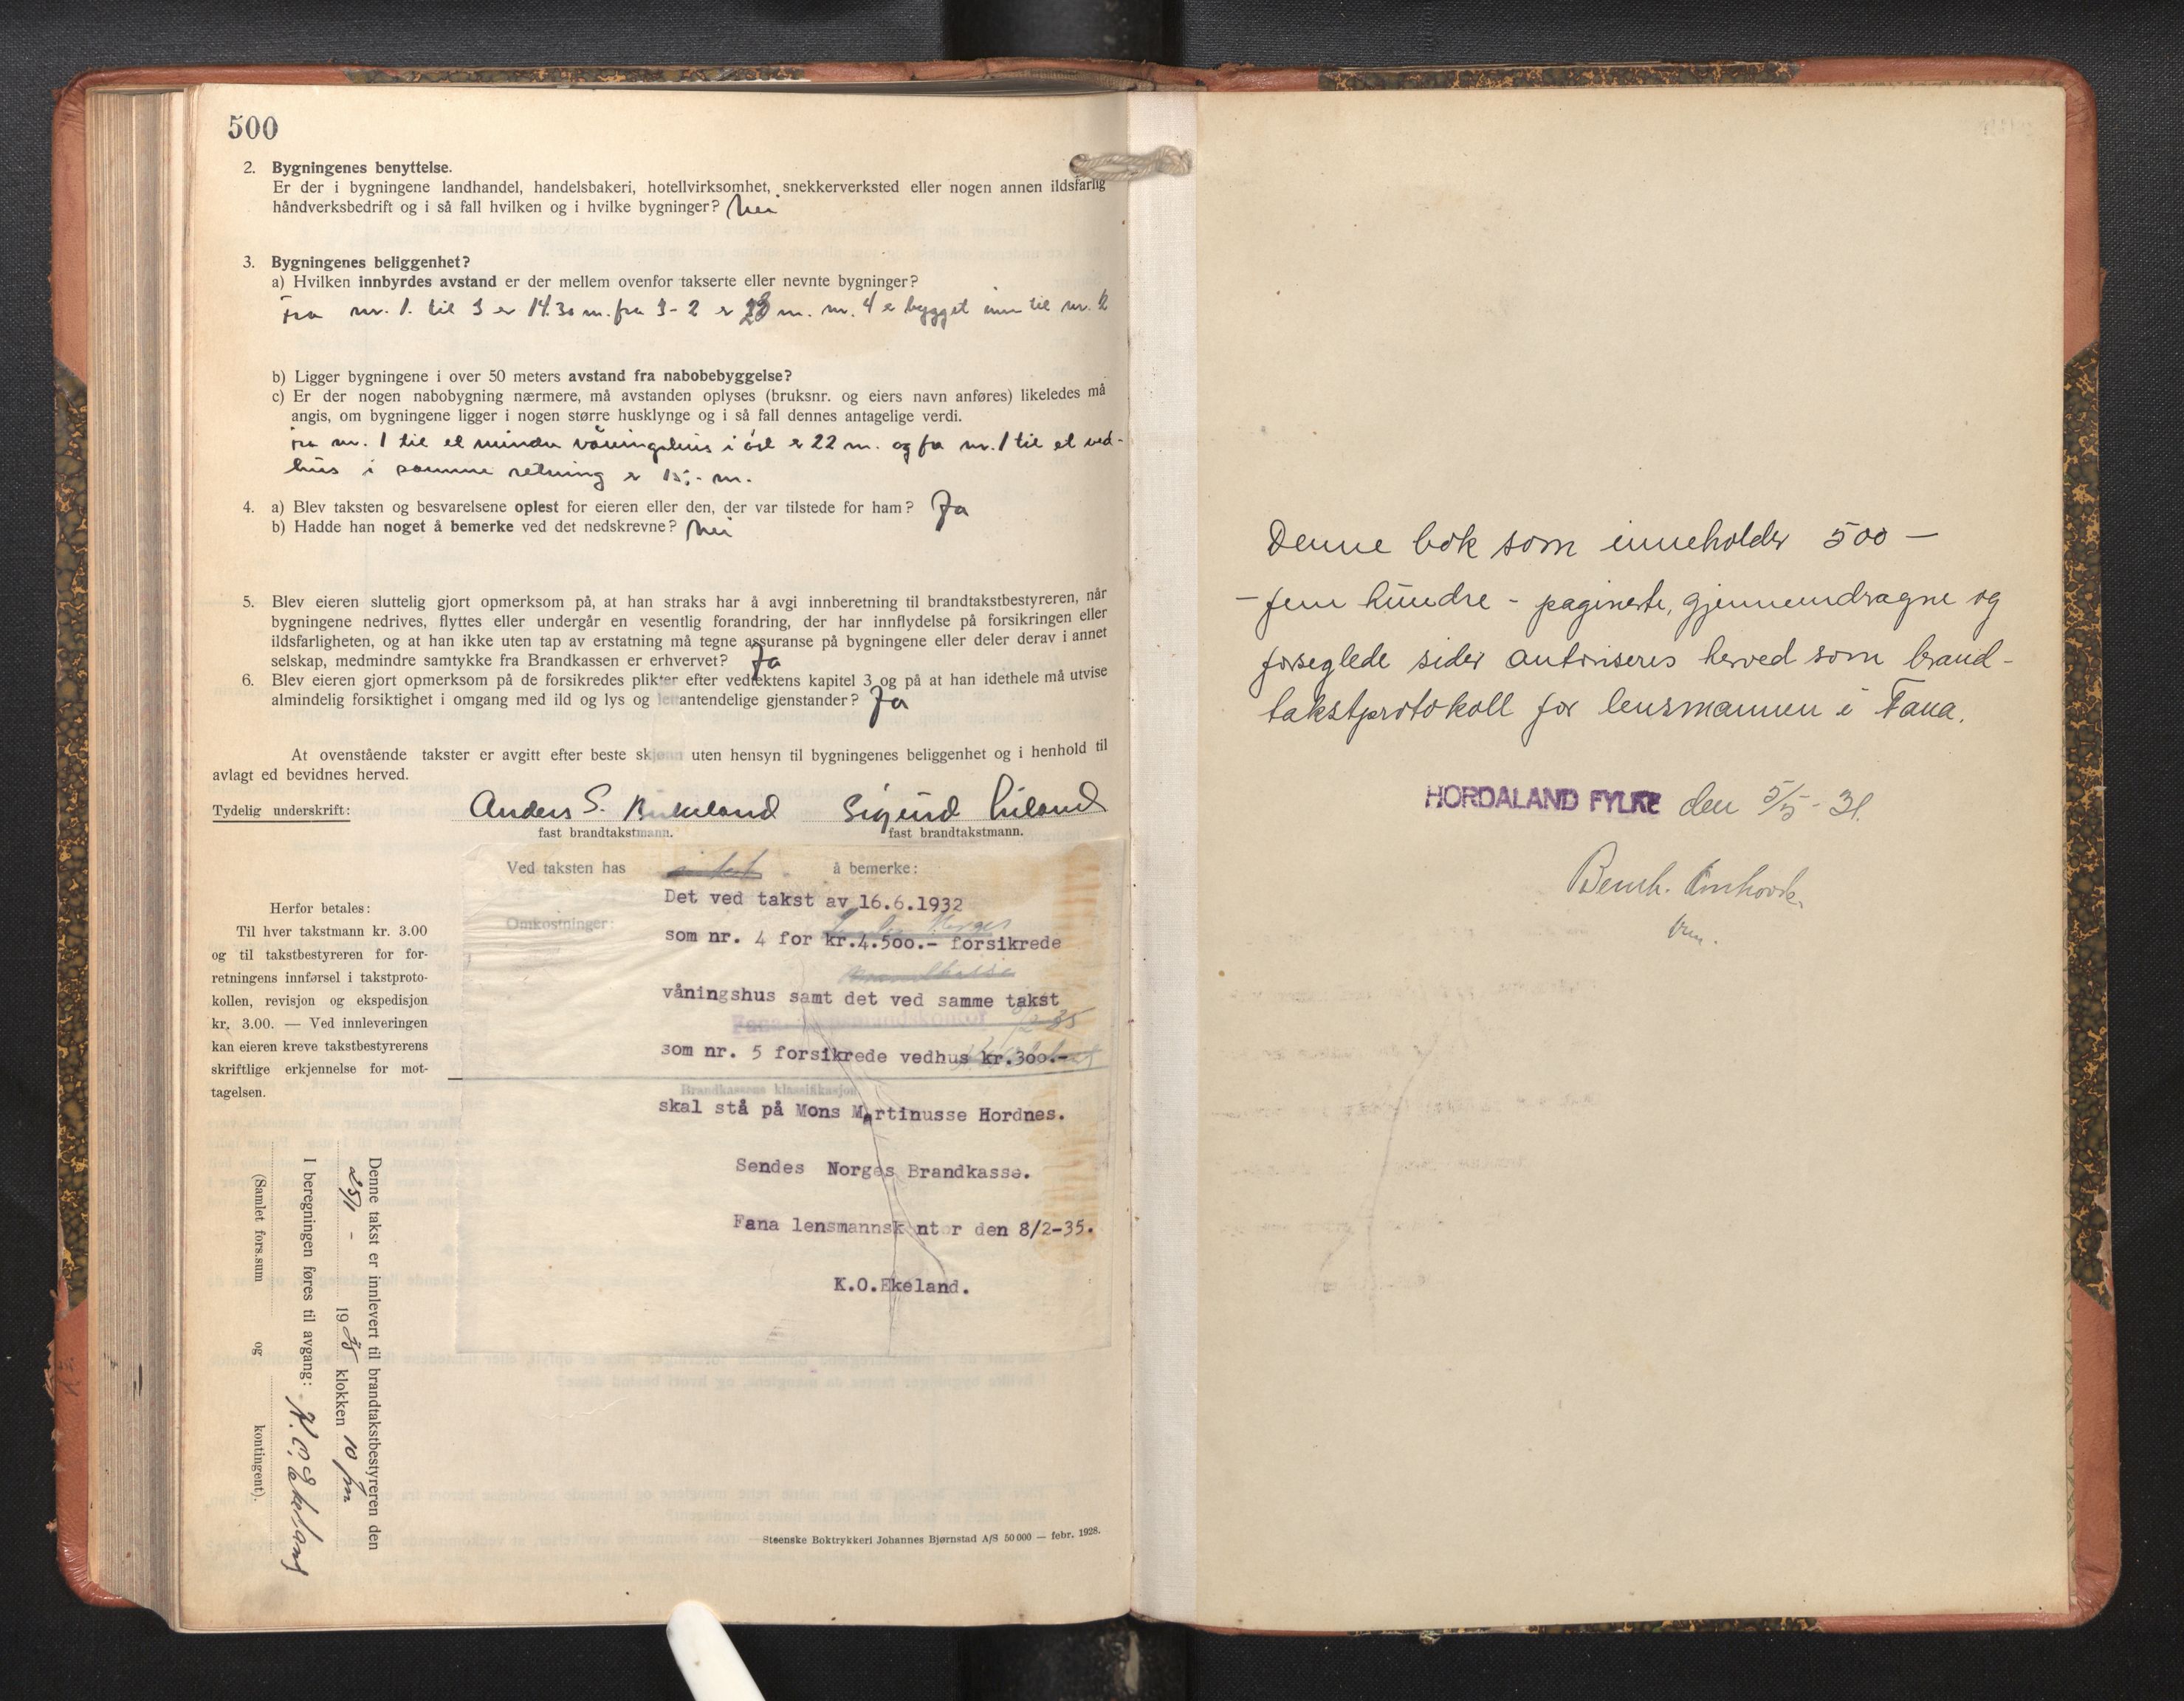 500
2. Bygningenes benyttelse.
Er der i bygningene landhandel, handelsbakeri, hotellvirksomhet, snekkerverksted eller nogen annen ildsfarlig
håndverksbedrift og i så fall hvilken og i hvilke bygninger? Nei
3. Bygningenes beliggenhet?
a) Hvilken innbyrdes avstand er der mellem ovenfor takserte eller nevnte bygninger?
Fra nr. 1. til 3 er 14.30 m. fra 3-2 er 28 m. nr. 4 er bygget inn til nr. 2
b) Ligger bygningene i over 50 meters avstand fra nabobebyggelse?
c) Er der nogen nabobygning nærmere, må avstanden oplyses (bruksnr. og eiers navn anføres) likeledes må
angis, om bygningene ligger i nogen større husklynge og i så fall dennes antagelige verdi.
Fra nr. 1 til et mindre våningshus i øst er 22 m. og fra nr. 1 til et ved-
hus i samme retning er 15,- m.
4. a) Blev taksten og besvarelsene oplest for eieren eller den, der var tilstede for ham? Ja
b) Hadde han noget å bemerke ved det nedskrevne? Nei
5. Blev eieren sluttelig gjort opmerksom på, at han straks har å avgi innberetning til brandtakstbestyreren, når
bygningene nedrives, flyttes eller undergår en vesentlig forandring, der har innflydelse på forsikringen eller
ildsfarligheten, og at han ikke uten tap av erstatning må tegne assuranse på bygningene eller deler derav i annet
selskap, medmindre samtykke fra Brandkassen er erhvervet? Ja
6. Blev eieren gjort opmerksom på de forsikredes plikter efter vedtektens kapitel 3 og på at han idethele må utvise
almindelig forsiktighet i omgang med ild og lys og lettantendelige gjenstander? Ja
At ovenstående takster er avgitt efter beste skjønn uten hensyn til bygningenes beliggenhet og i henhold til
avlagt ed bevidnes herved.
Tydelig underskrift: Anders S. Birkeland Sigurd
fast brandtakstmann. fast brandtakstmann.
Ved taksten has å bemerke:
Det ved takst av 16.6.1932
Omkostninger:
som nr. 4 for kr.4.500.- forsikrede
våningshus samt det ved samme takst
som nr. 5 forsikrede vedhus kr.300.-
Brandkassens klassifikasjon
skal stå på Mons Martinusse Hordnes.
Sendes Norges Brandkasse.
Fana lensmannsk nt r den 8/2-35.
K.O.Ekeland.
Herfor betales:
Til hver takstmann kr. 3.00
og til takstbestyreren for for-
retningens innførsel i takstproto-
kollen, revisjon og ekspedisjon
kr. 3.00. — Ved innleveringen
kan eieren kreve takstbestyrerens
skriftlige erkjennelse for mot-
tagelsen.
Denne takst er innlevert til brandtakstbestyreren den
25/1 - 1935 klokken 10 fm
I beregningen føres til avgang: K.O. Ekeland
(Samlet fors.sum og kontingent).
Steenske Boktrykkeri Johannes Bjørnstad A/S 50 000 — febr. 1928.
Denne bok som inneholder 500 —
— fem hundre — paginerte, gjennemdragne og
forseglede sider autoriseres herved som brand-
takstprotokoll for lensmannen i Fana.
HORDALAND FYLKE den 5/5 - 31.
Bernh.